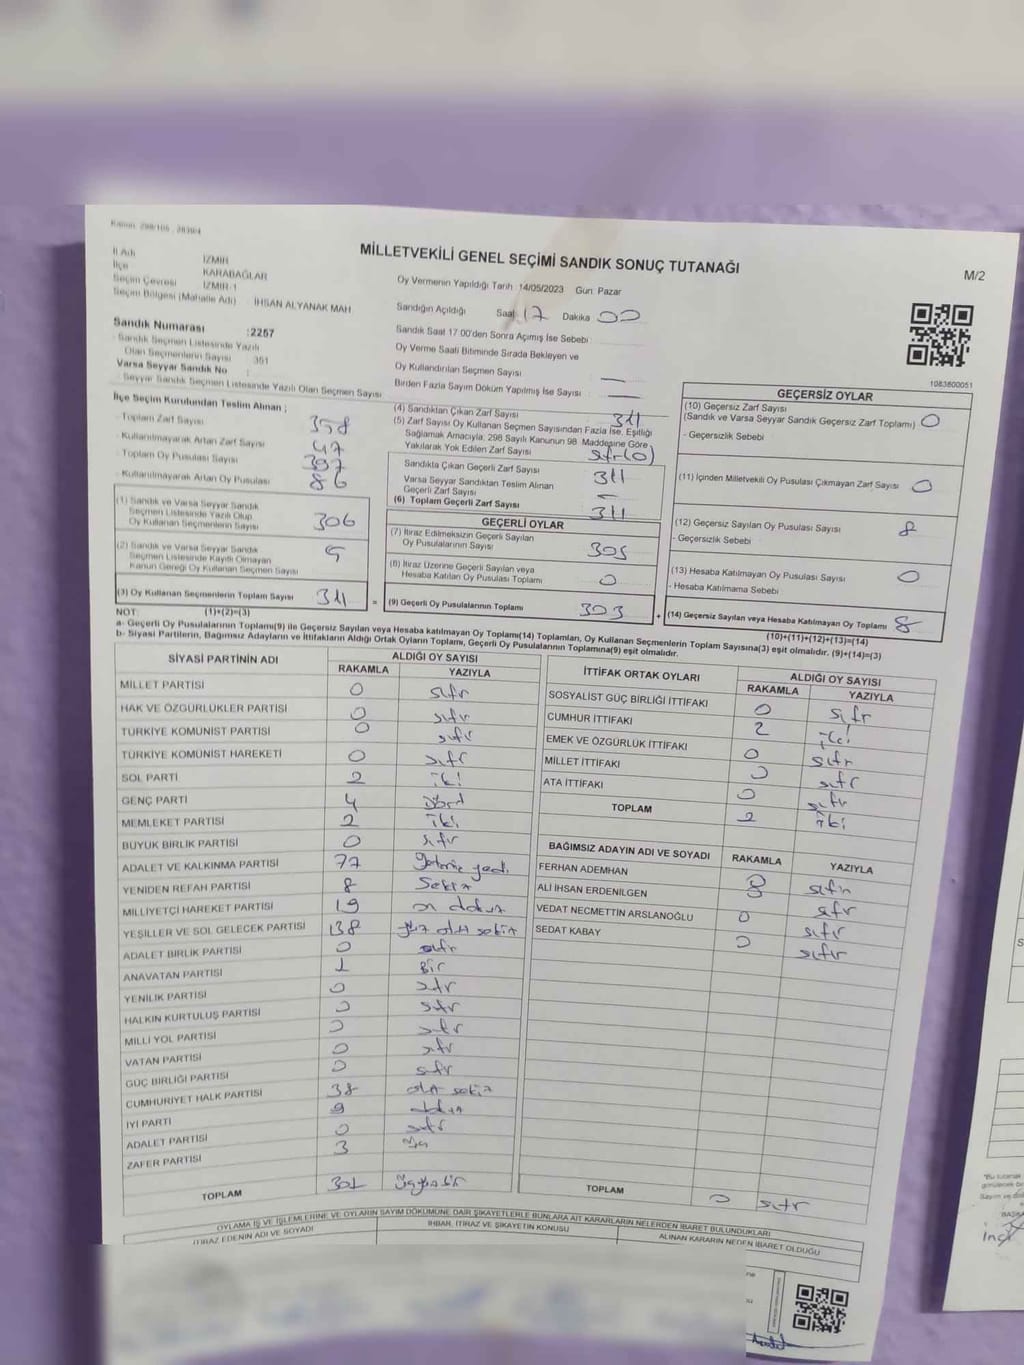 MİLLETVEKİLİ GENEL SEÇİMİ SANDIK SONUÇ TUTANAĞI
M/2
İl Adı İZMİR
İlçe KARABAĞLAR
Seçim Çevresi İZMİR-1
Seçim Bölgesi (Mahalle Adı) : İHSAN ALYANAK MAH
Sandık Numarası :2257
Sandık Seçmen Listesinde Yazılı
Olan Seçmenlerin Sayısı 351
Varsa Seyyar Sandık No :
Seyyar Sandık Seçmen Listesinde Yazılı Olan Seçmen Sayısı
Oy Vermenin Yapıldığı Tarih :14/05/2023 Gün Pazar
Sandığın Açıldığı Saat 17 Dakika 00
Sandık Saat 17:00'den Sonra Açımış İse Sebebi
Oy Verme Saati Bitiminde Sırada Bekleyen ve
Oy Kullandırılan Seçmen Sayısı : —
Birden Fazla Sayım Döküm Yapılmış İse Sayısı : —
1083800051
İlçe Seçim Kurulundan Teslim Alınan ;
Toplam Zarf Sayısı 358
Kullanılmayarak Artan Zarf Sayısı 47
Toplam Oy Pusulası Sayısı 397
Kullanılmayarak Artan Oy Pusulası 86
(1) Sandık ve Varsa Seyyar Sandık
Seçmen Listesinde Yazılı Olup
Oy Kullanan Seçmenlerin Sayısı 306
(2) Sandık ve Varsa Seyyar Sandık
Seçmen Listesinde Kayıtlı Olmayan
Kanun Gereği Oy Kullanan Seçmen Sayısı
(3) Oy Kullanan Seçmenlerin Toplam Sayısı 311
(4) Sandıktan Çıkan Zarf Sayısı 311
(5) Zarf Sayısı Oy Kullanan Seçmen Sayısından Fazla İse, Eşitliği
Sağlamak Amacıyla; 298 Sayılı Kanunun 98. Maddesine Göre
Yakılarak Yok Edilen Zarf Sayısı sıfır (0)
Sandıkta Çıkan Geçerli Zarf Sayısı 311
Varsa Seyyar Sandıktan Teslim Alınan
Geçerli Zarf Sayısı –
(6) Toplam Geçerli Zarf Sayısı 311
GEÇERLİ OYLAR
(7) İtiraz Edilmeksizin Geçerli Sayılan
Oy Pusulalarının Sayısı
(8) İtiraz Üzerine Geçerli Sayılan veya
Hesaba Katılan Oy Pusulası Toplamı 0
= (9) Geçerli Oy Pusulalarının Toplamı 303
GEÇERSİZ OYLAR
(10) Geçersiz Zarf Sayısı
(Sandık ve Varsa Seyyar Sandık Geçersiz Zarf Toplamı) 0
- Geçersizlik Sebebi
(11) İçinden Milletvekili Oy Pusulası Çıkmayan Zarf Sayısı 0
(12) Geçersiz Sayılan Oy Pusulası Sayısı 8
- Geçersizlik Sebebi
(13) Hesaba Katılmayan Oy Pusulası Sayısı 0
- Hesaba Katılmama Sebebi
+ (14) Geçersiz Sayılan veya Hesaba Katılmayan Oy Toplamı 8
NOT: (1)+(2)=(3)
(10)+(11)+(12)+(13)=(14)
a- Geçerli Oy Pusulalarının Toplamı(9) ile Geçersiz Sayılan veya Hesaba katılmayan Oy Toplamı(14) Toplamları, Oy Kullanan Seçmenlerin Toplam Sayısına(3) eşit olmalıdır. (9)+(14)=(3)
b- Siyasi Partilerin, Bağımsız Adayların ve İttifakların Aldığı Ortak Oyların Toplamı, Geçerli Oy Pusulalarının Toplamına(9) eşit olmalıdır.
SİYASİ PARTİNİN ADI ALDIĞI OY SAYISI
RAKAMLA YAZIYLA
MİLLET PARTİSİ 0 sıfır
HAK VE ÖZGÜRLÜKLER PARTİSİ 0 sıfır
TÜRKİYE KOMÜNİST PARTİSİ 0 sıfır
TÜRKİYE KOMÜNİST HAREKETİ 0 sıfır
SOL PARTİ 2 iki
GENÇ PARTİ 4 dört
MEMLEKET PARTİSİ 2 iki
BÜYÜK BİRLİK PARTİSİ 0 sıfır
ADALET VE KALKINMA PARTİSİ 77 yetmiş yedi
YENİDEN REFAH PARTİSİ 8 Sekiz
MİLLİYETÇİ HAREKET PARTİSİ 19 on dokuz
YEŞİLLER VE SOL GELECEK PARTİSİ 138 yüz otuz sekiz
ADALET BİRLİK PARTİSİ 0 sıfır
ANAVATAN PARTİSİ 1 Bir
YENİLİK PARTİSİ 0 sıfır
HALKIN KURTULUŞ PARTİSİ 0 sıfır
MİLLİ YOL PARTİSİ 0 sıfır
VATAN PARTİSİ 0 sıfır
GÜÇ BİRLİĞİ PARTİSİ 0 sıfır
CUMHURİYET HALK PARTİSİ 38 otuz sekiz
İYİ PARTİ 9 dokuz
ADALET PARTİSİ 0 sıfır
ZAFER PARTİSİ 3 üç
TOPLAM 301 üçyüz bir
İTTİFAK ORTAK OYLARI ALDIĞI OY SAYISI
RAKAMLA YAZIYLA
SOSYALİST GÜÇ BİRLİĞİ İTTİFAKI 0 sıfır
CUMHUR İTTİFAKI 2 iki
EMEK VE ÖZGÜRLÜK İTTİFAKI 0 sıfır
MİLLET İTTİFAKI 0 sıfır
ATA İTTİFAKI 0 sıfır
TOPLAM 2 iki
BAĞIMSIZ ADAYIN ADI VE SOYADI RAKAMLA YAZIYLA
FERHAN ADEMHAN 0 sıfır
ALİ İHSAN ERDENİLGEN 0 sıfır
VEDAT NECMETTİN ARSLANOĞLU 0 sıfır
SEDAT KABAY 0 sıfır
TOPLAM 0 sıfır
OYLAMA İŞ VE İŞLEMLERİNE VE OYLARIN SAYIM DÖKÜMÜNE DAİR ŞİKAYETLERLE BUNLARA AİT KARARLARIN NELERDEN İBARET BULUNDUKLARI
İTİRAZ EDENİN ADI VE SOYADI
İHBAR, İTİRAZ VE ŞİKAYETİN KONUSU
ALINAN KARARIN NEDEN İBARET OLDUĞU